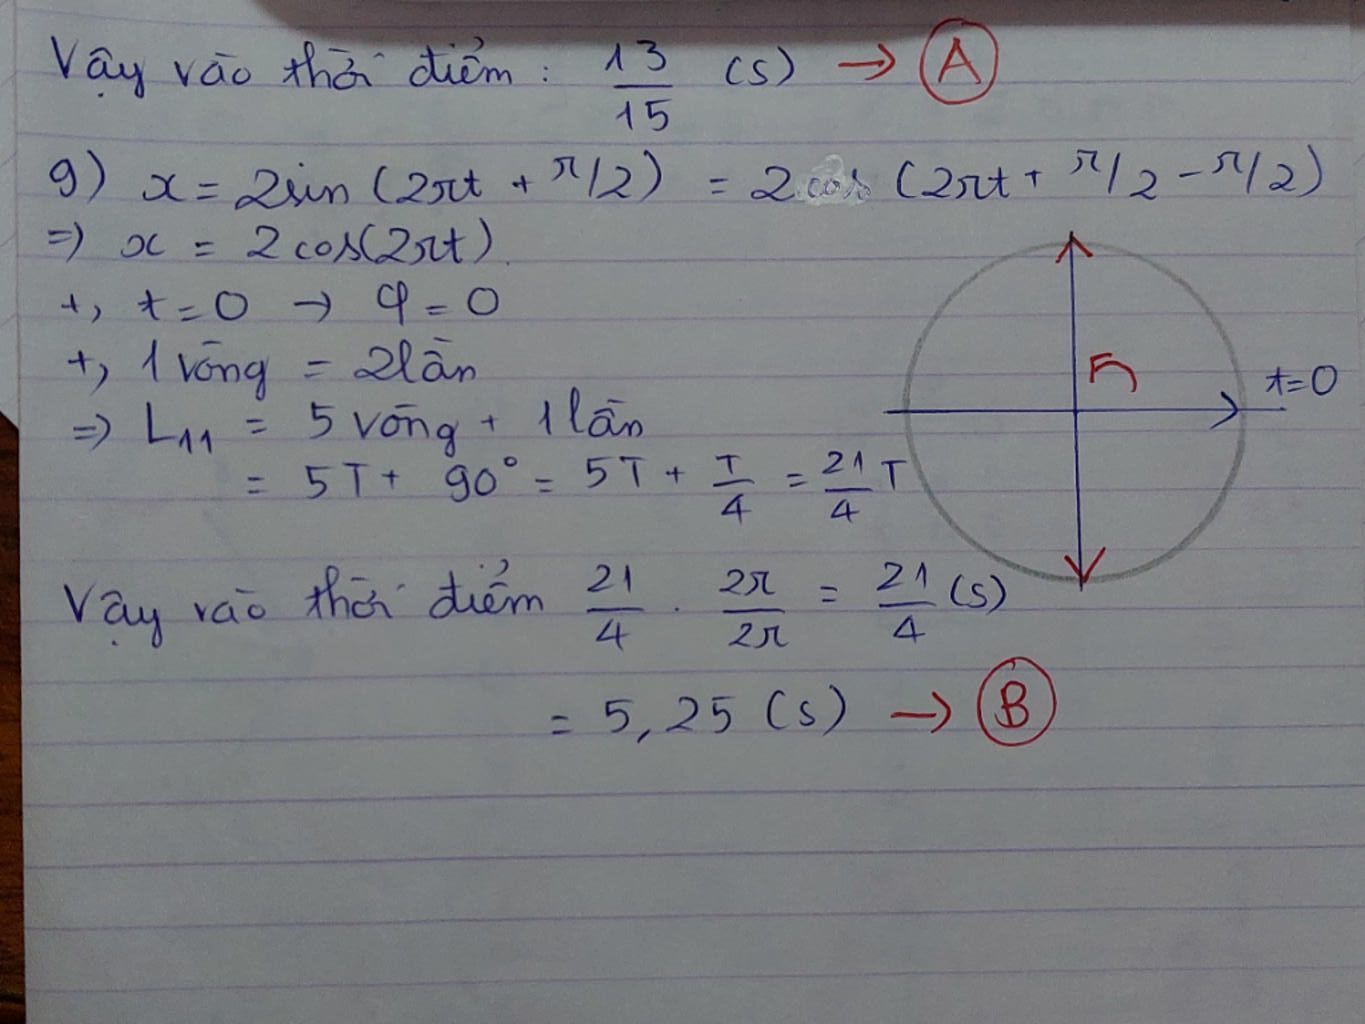 Vậy vào thời điểm: 13/15 (s) → A
9) x = 2sin (2πt + π/2) = 2cos (2πt + π/2 - π/2)
=> x = 2cos(2πt).
+, t=0 → φ=0
t=0
+, 1 vòng = 2 lần
=> L₁₁ = 5 vòng + 1 lần
= 5T + 90° = 5T + T/4 = 21/4 T
Vậy vào thời điểm 21/4 . 2π/2π = 21/4 (s)
= 5,25 (s) → B